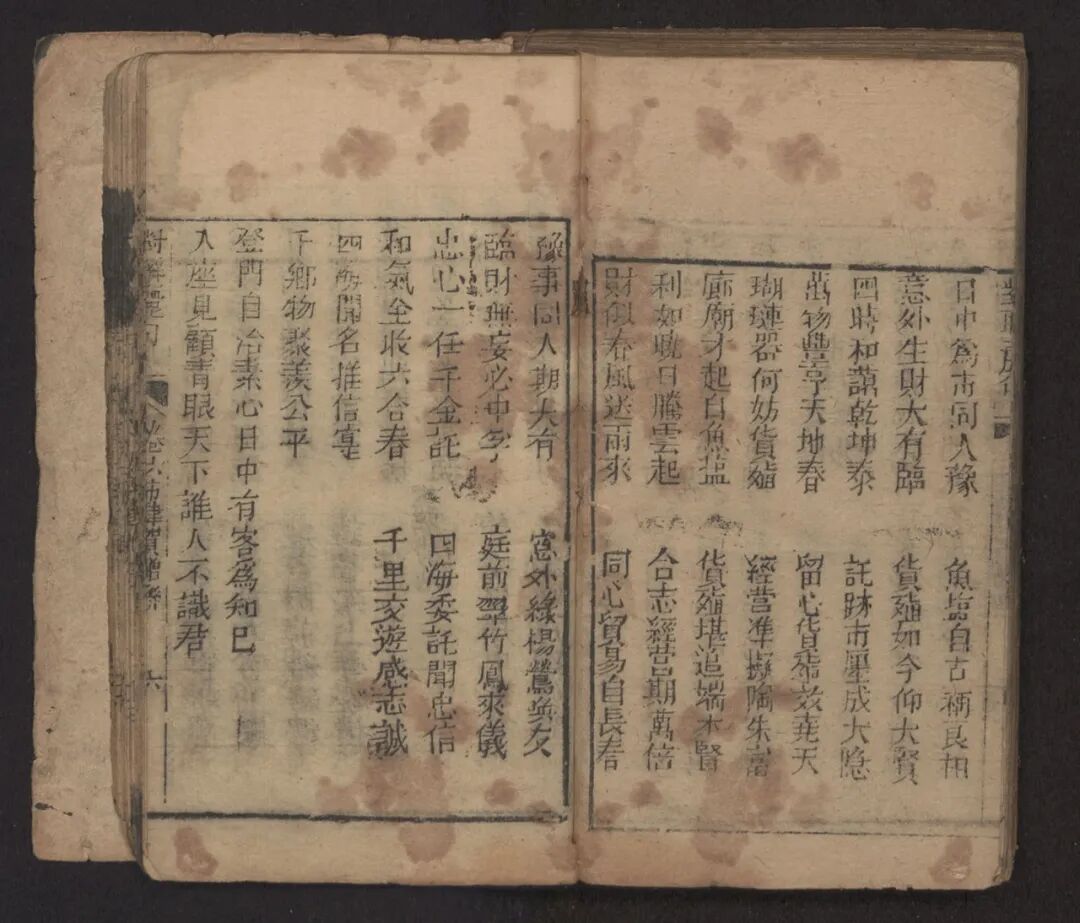 日中為市同人豫　魚塩自古稱良相
意外生財大有臨　貨殖如今仰大賢
四時和藹乾坤泰　託跡市廛成大隱
萬物豐亨天地春　留心貨殖效堯天
瑚璉器何妨貨殖　經營準擬陶朱富
廊廟才起自魚塩　貨殖堪追端木賢
利如曉日騰雲起　合志經营期萬倍
財似春風送雨來　同心貿易自長春
豫事同人期大有　窓外綠楊鶯喚友
臨財無妄必中孚　庭前翠竹鳳來儀
忠心一任千金託　四海委託聞忠信
和氣全收六合春　千里交遊感志誠
四聞名推信寔
千鄉物聚羨公平
登門自治素心日中有客為知己
入座見顧青眼天下誰人不識君
六